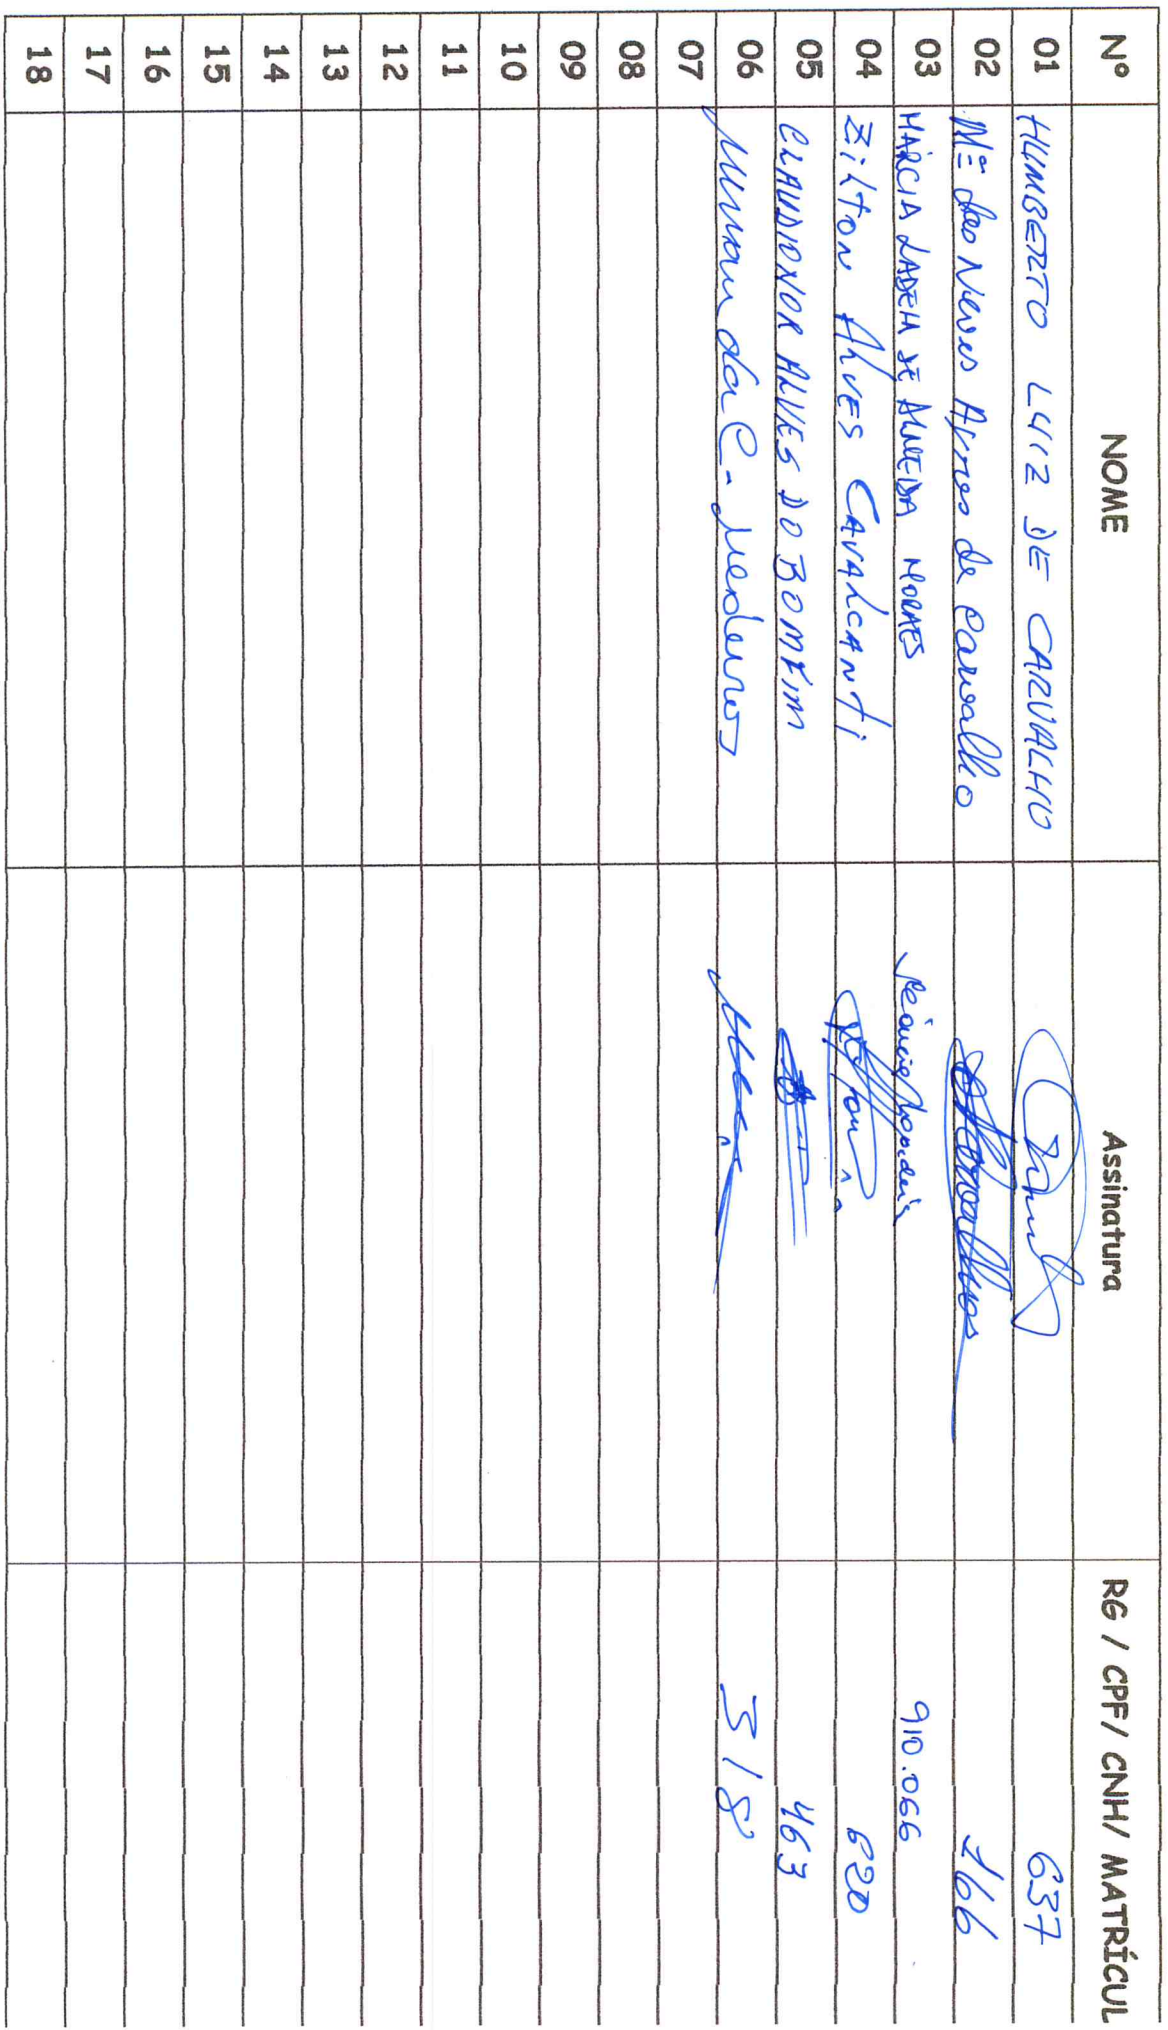 Nº NOME Assinatura RG / CPF/ CNH/ MATRÍCUL
01 HUMBERTO LUIZ DE CARVALHO 637
02 Mª das Neves Ayres de Carvalho 166
03 MÁRCIA DE ALMEIDA MORAES 910.066
04 Zilton Alves Cavalcanti 620
05 CLAUDIONOR ALVES DO BOMFIM 463
06 C. Medeiros 318
07
08
09
10
11
12
13
14
15
16
17
18